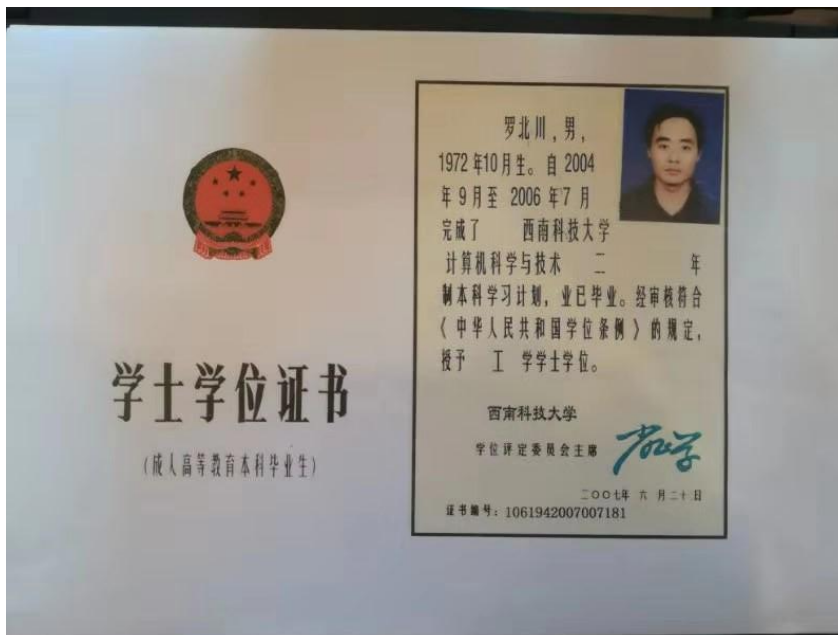 学士学位证书
(成人高等教育本科毕业生)
罗北川,男,
1972年10月生。自2004
年9月至2006年7月
完成了 西南科技大学
计算机科学与技术 二 年
制本科学习计划,业已毕业。经审核符合
《中华人民共和国学位条例》的规定,
授予 工 学学士学位。
西南科技大学
学位评定委员会主席
二〇〇七年 六 月二十日
证书编号:1061942007007181